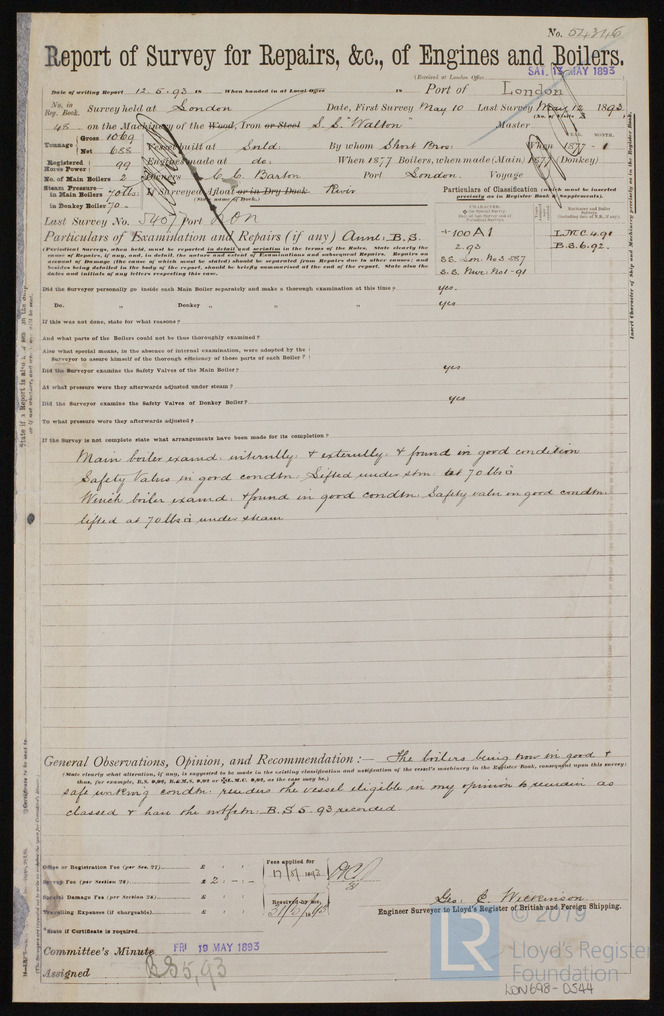 No. 54346
Report of Survey for Repairs, &c., of Engines and Boilers.
(Received at London Office SAT. 13 MAY 1893
Date of writing Report 12. 5. 93 18 When handed in at Local Office 18 Port of London
No. in Reg. Book. Survey held at London Date, First Survey May 10 Last Survey May 12 1893
(No. of Visits 3)
48 on the Machinery of the Wood, Iron or Steel S. S. "Walton" Master
Tonnage Gross 1069 Net 688 Vessel built at Snld: By whom Short Bros: When 1877 - 1 YEAR. MONTH.
Registered Horse Power 99 Engines made at do: When 1877 Boilers, when made (Main) 1877 (Donkey)
No. of Main Boilers 2 Owners C. C. Barton Port London. Voyage
Steam Pressure in Main Boilers 70 lbs. If Surveyed Afloat or in Dry Dock River
(State name of Dock.)
in Donkey Boiler 70
Particulars of Classification (which must be inserted precisely as in Register Book & Supplements).
Last Survey No. 5407 Port LON
Particulars of Examination and Repairs (if any) Annl: B.S.
(Periodical Surveys, when held, must be reported in detail and seriatim in the terms of the Rules. State clearly the cause of Repairs, if any, and, in detail, the nature and extent of Examinations and subsequent Repairs. Repairs on account of Damage (the cause of which must be stated) should be separated from Repairs due to other causes; and besides being detailed in the body of the report, should be briefly summarised at the end of the report. State also the dates and initials of any letters respecting this case.
CHARACTER.
Machinery and Boiler Surveys (including date of N.B., if any).
+100 A1 L.M.C. 4.91
2.93 B.S. 6.92.
S.S. Lon. No 3-8/87
S.S. Nwc. No 1-91
Insert Character of Ship and Machinery precisely as in the Register Book.
Did the Surveyor personally go inside each Main Boiler separately and make a thorough examination at this time? yes.
Do. „ Donkey „ „ „ yes
If this was not done, state for what reasons?
And what parts of the Boilers could not be thus thoroughly examined?
Also what special means, in the absence of internal examination, were adopted by the Surveyor to assure himself of the thorough efficiency of those parts of each Boiler?
Did the Surveyor examine the Safety Valves of the Main Boiler? yes
At what pressure were they afterwards adjusted under steam?
Did the Surveyor examine the Safety Valves of Donkey Boiler? yes
To what pressure were they afterwards adjusted?
If the Survey is not complete state what arrangements have been made for its completion?
Main boiler examd: internlly: & externlly: & found in good condition
Safety Valves in good condtn: Lifted under stm: at 70 lbs
Winch boiler examd: & found in good condtn: Safety valve in good condtn:
lifted at 70 lbs under steam
General Observations, Opinion, and Recommendation:— The boilers being now in good &
(State clearly what alteration, if any, is suggested to be made in the existing classification and notification of the vessel's machinery in the Register Book, consequent upon this survey; thus, for example, B.S. 9,92, B.&M.S. 9,92 or L.M.C. 9,92, as the case may be.)
safe working condtn: renders the vessel eligible in my opinion to remain as
classed & have the notfctn: B.S 5. 93 recorded.
Office or Registration Fee (per Sec. 27) £ : :
Survey Fee (per Section 28) £ 2 : - : -
Special Damage Fee (per Section 28) £ : :
Travelling Expenses (if chargeable) £ : :
Fees applied for 17/5/1893
Received by me, 31/5/1893
Geo: C. Wilkinson
Engineer Surveyor to Lloyd's Register of British and Foreign Shipping.
*State if Certificate is required
Committee's Minute FRI 19 MAY 1893
Assigned BS 5,93
© 2019
LR
Lloyd's Register
Foundation
LDN698-0544